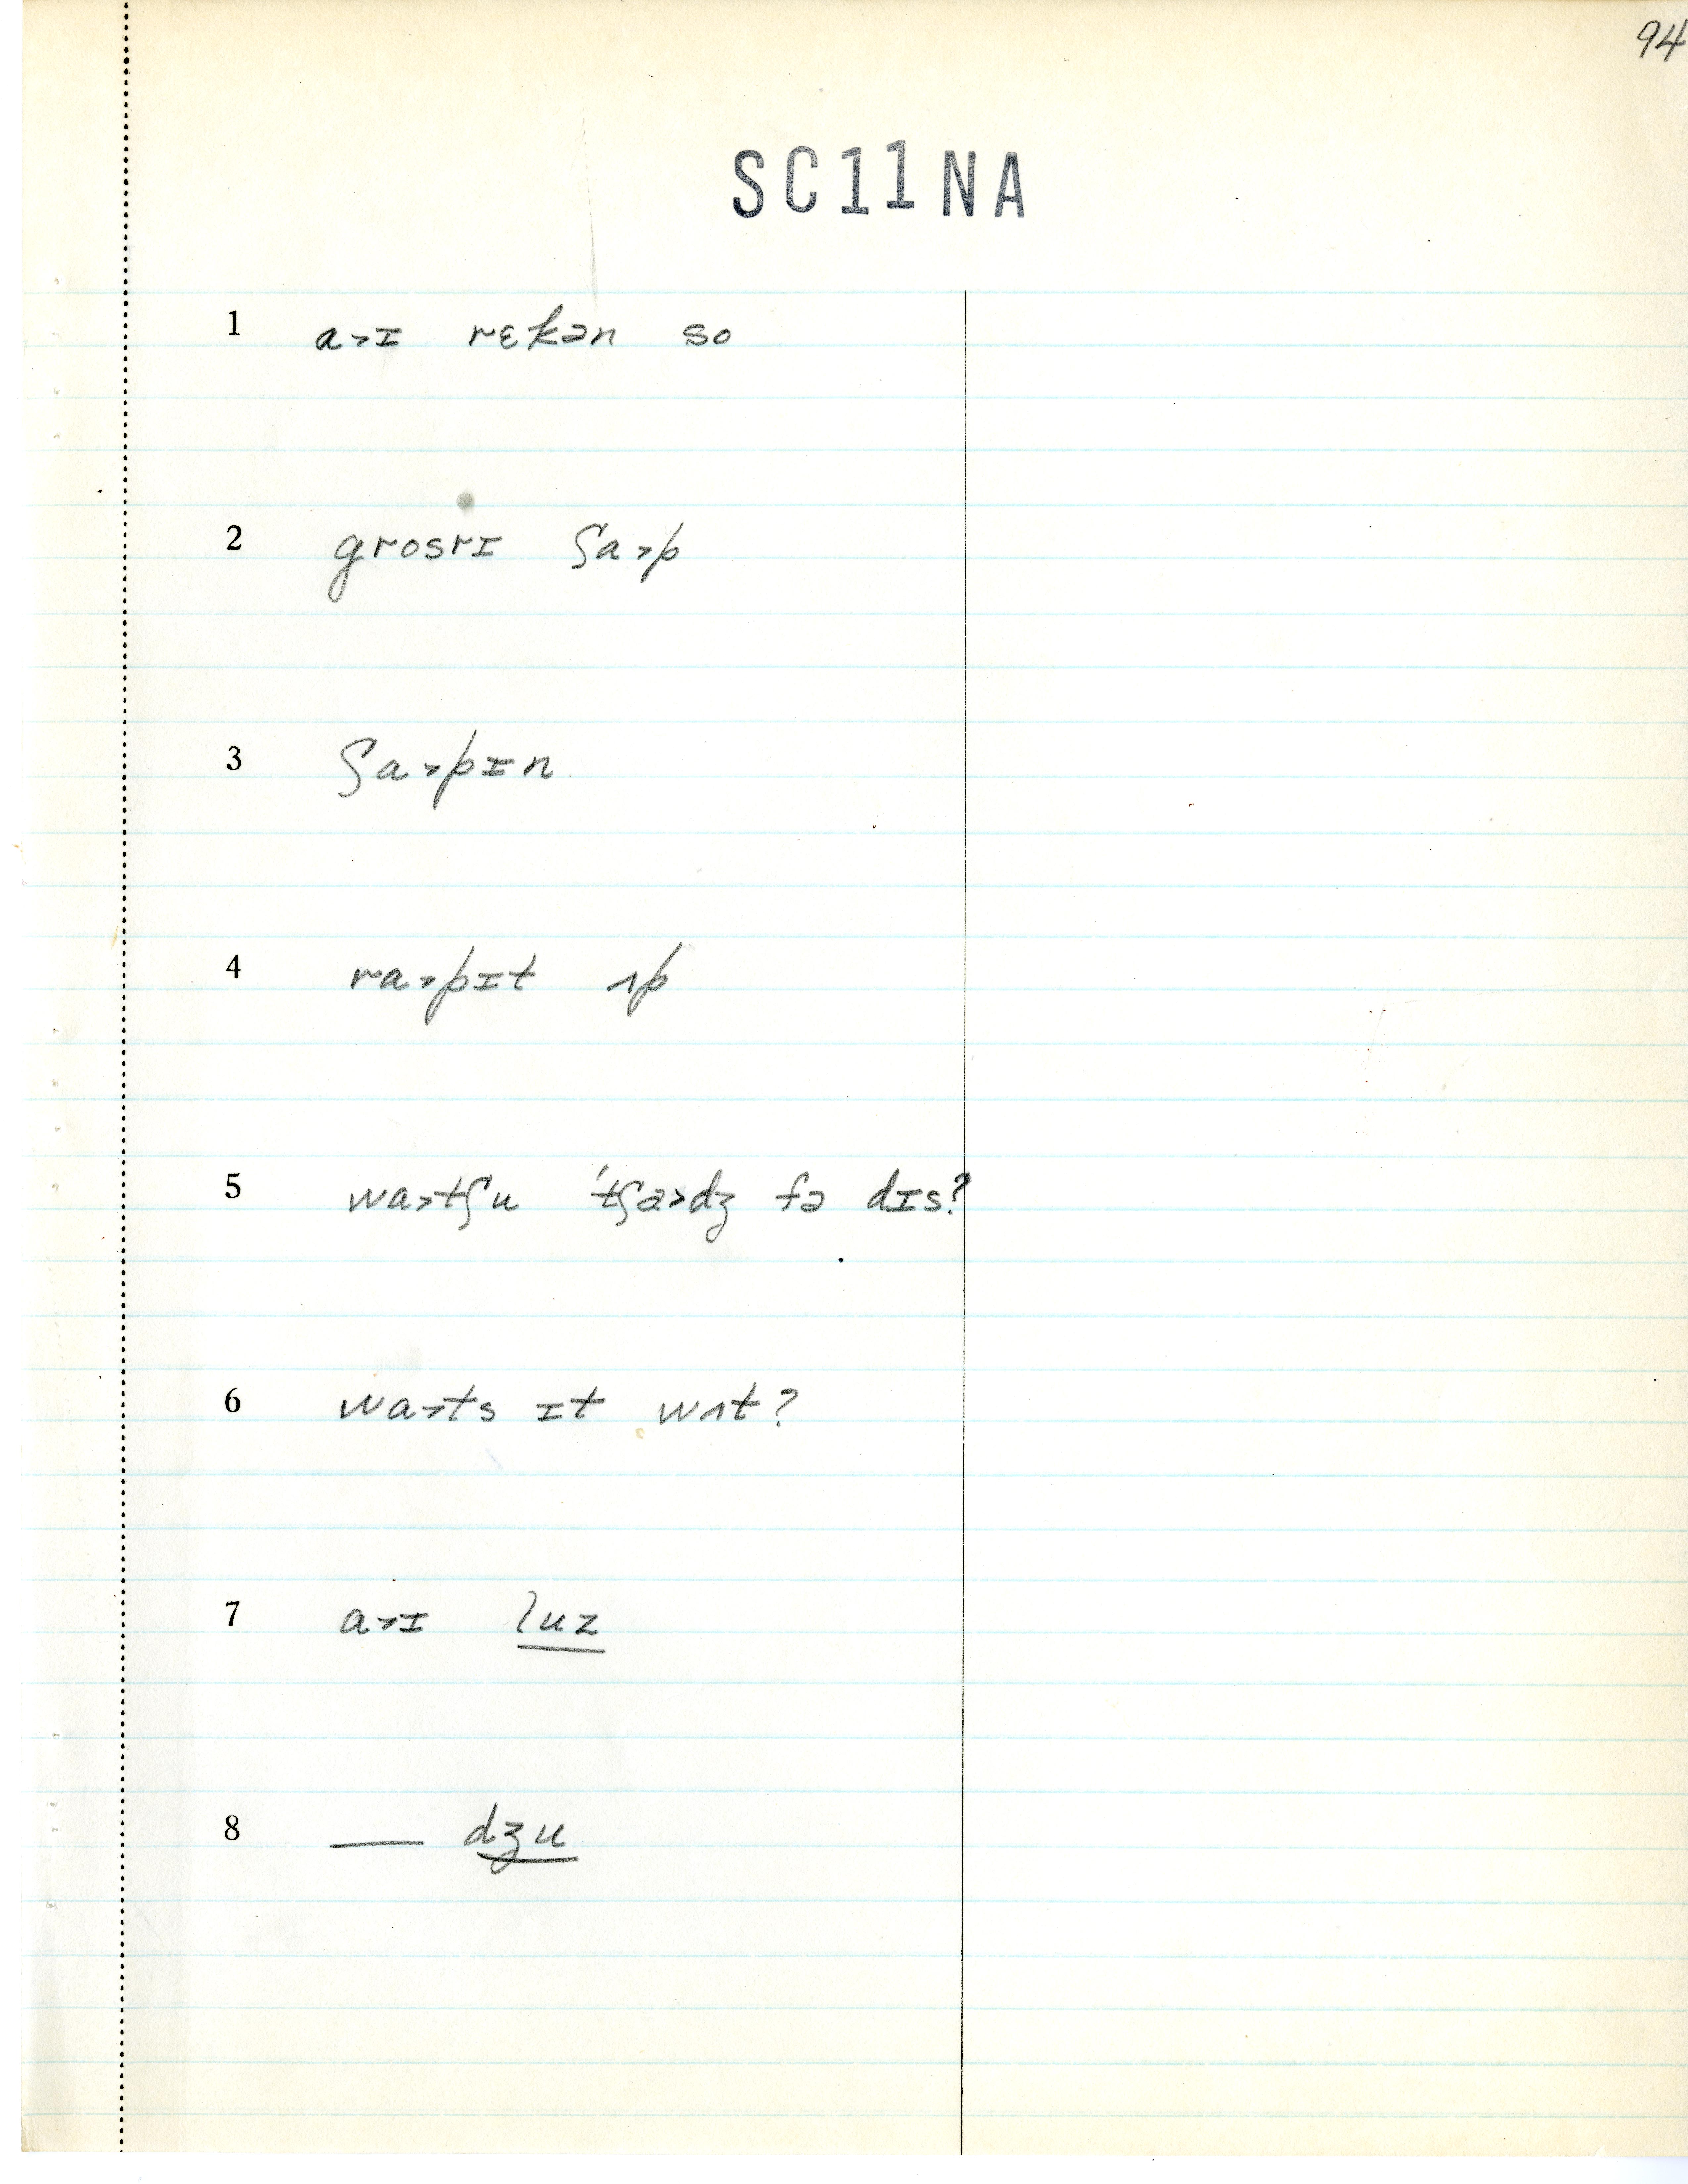 94
SC11NA
1 a˃ɪ rɛkən so
2 grosrɪ ʃa˃p
3 ʃa˃pɪn
4 ra˃pɪt ʌp
5 wa˃tʃu ˈtʃa˃dʒ fə dɪs?
6 wa˃ts ɪt wʌt?
7 a˃ɪ luz
8 — dʒu